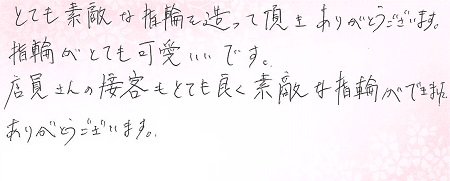 とても素敵な指輪を造って頂きありがとうございます。
指輪がとても可愛いいです。
店員さんの接客もとても良く素敵な指輪ができました。
ありがとうございます。